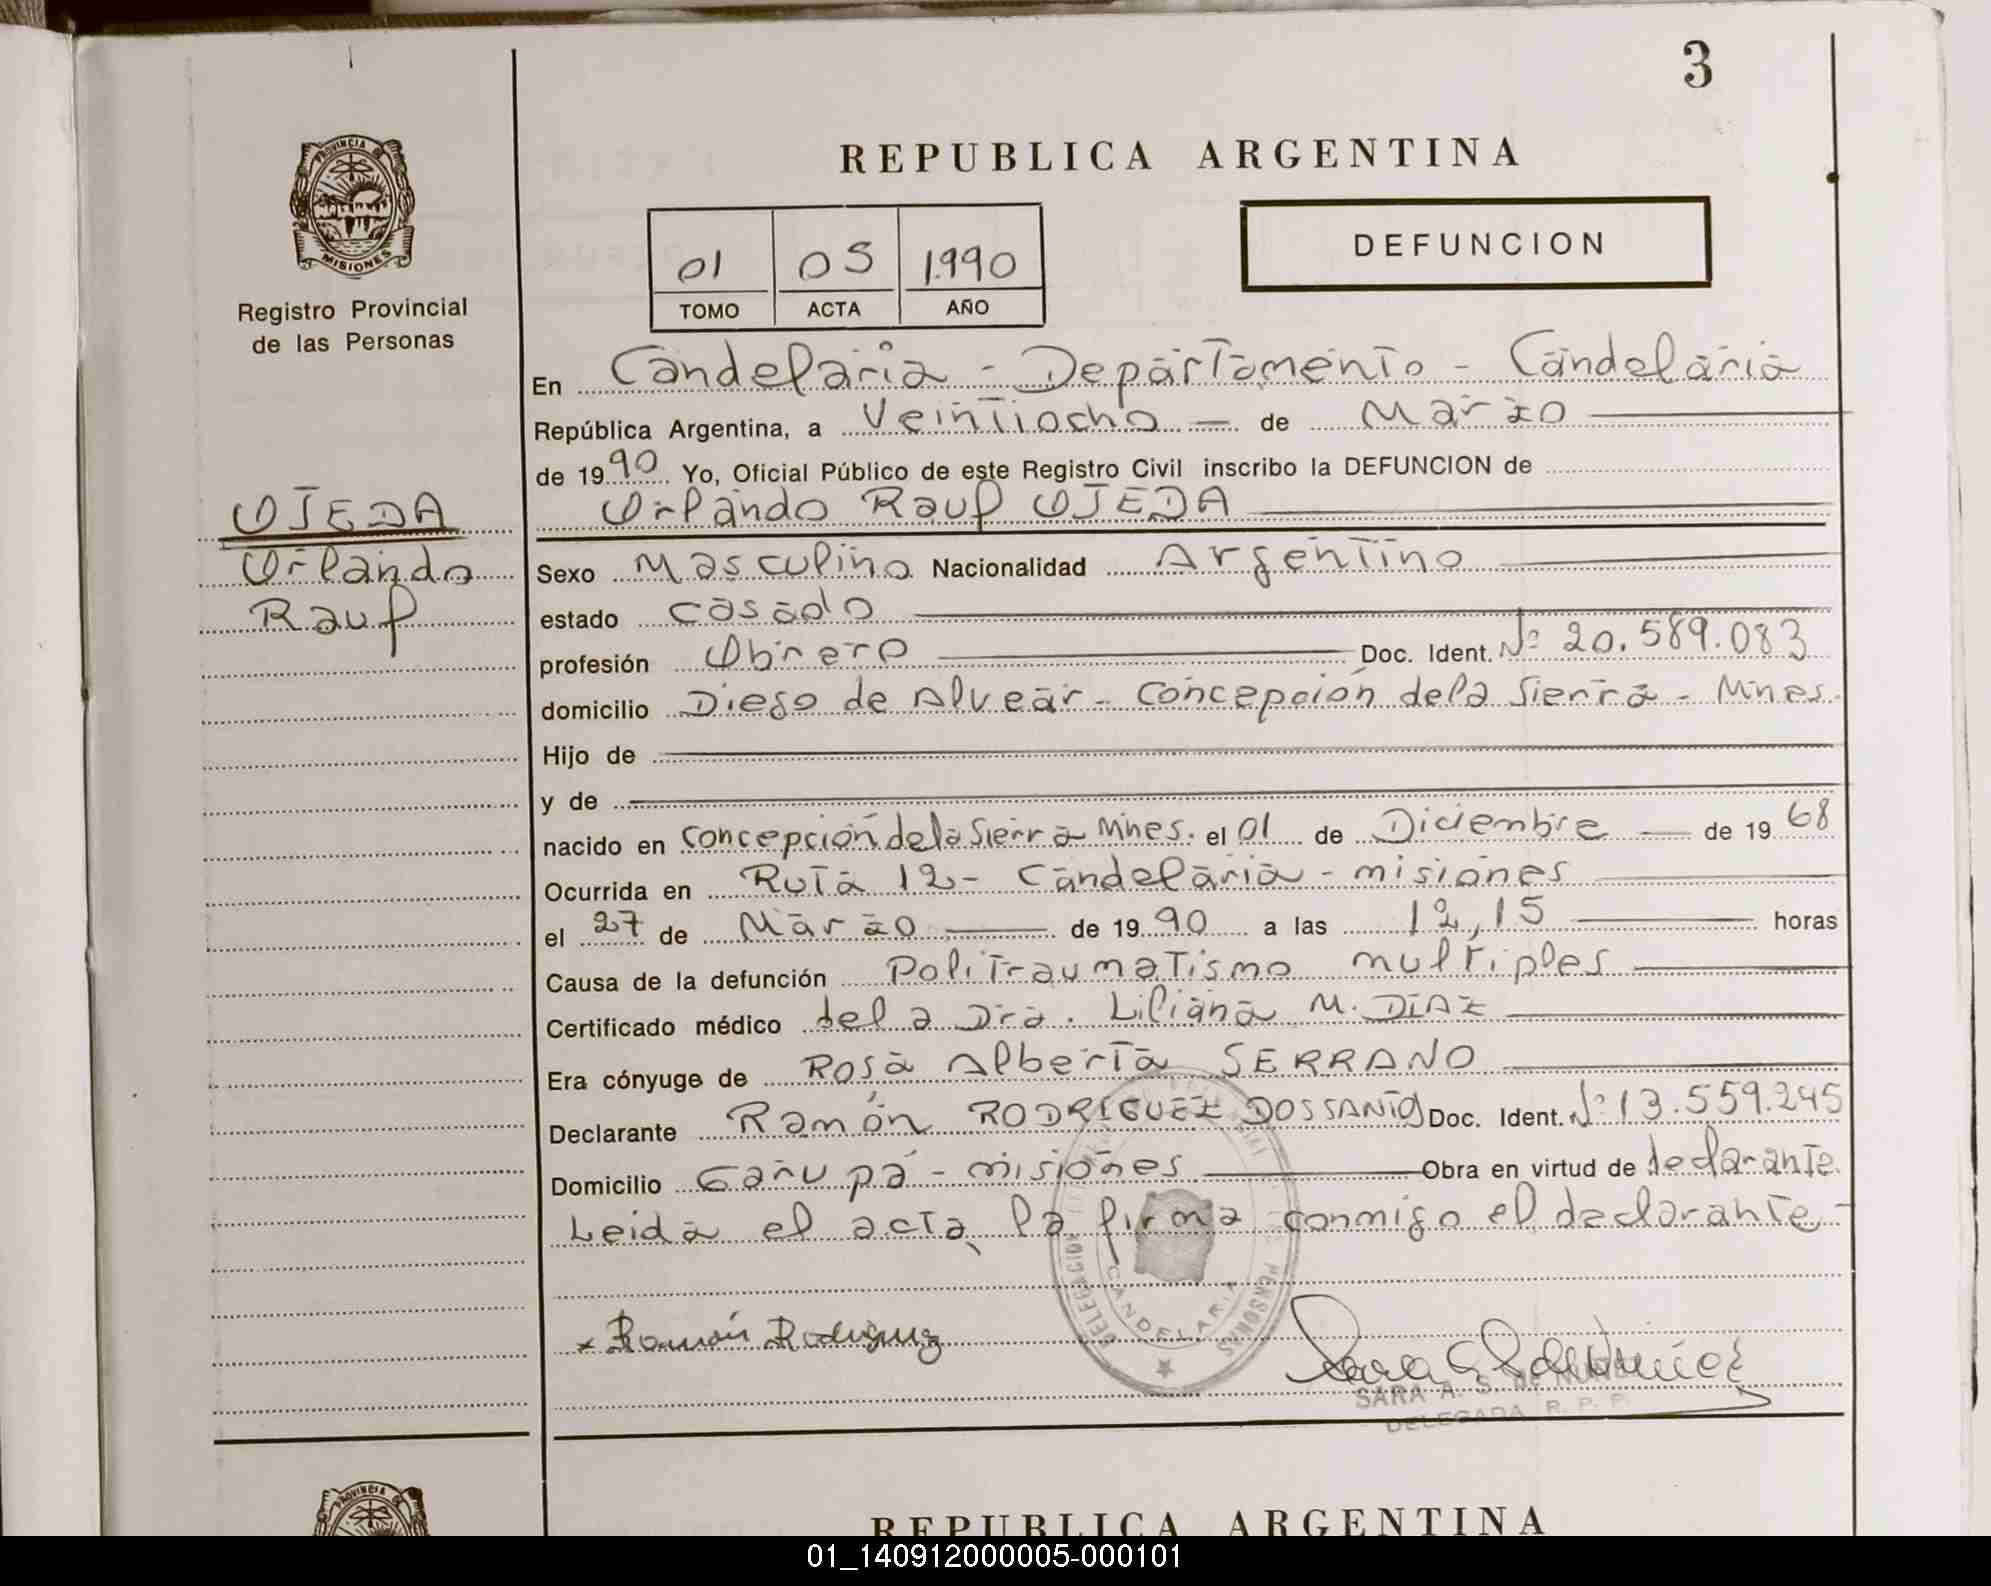 3
PROVINCIA DE
MISIONES
Registro Provincial
de las Personas
REPUBLICA ARGENTINA
01 05 1.990
TOMO ACTA AÑO
DEFUNCION
En Candelaria - Departamento - Candelaria
República Argentina, a Veintiocho — de Marzo
de 1990 Yo, Oficial Público de este Registro Civil inscribo la DEFUNCION de
OJEDA
Orlando
Raul
Orlando Raul OJEDA
Sexo Masculino Nacionalidad Argentino
estado casado
profesión Obrero Doc. Ident. Nº 20.589.083
domicilio Diego de Alvear - Concepción de la Sierra - Mnes.
Hijo de
y de
nacido en Concepción de la Sierra Mnes. el 01 de Diciembre — de 1968
Ocurrida en Ruta 12 - Candelaria - misiones
el 27 de Marzo de 1990 a las 12,15 horas
Causa de la defunción Politraumatismo multiples
Certificado médico de la Dra. Liliana M. DIAZ
Era cónyuge de Rosa Alberta SERRANO
Declarante Ramón RODRIGUEZ DOSSANTO Doc. Ident. Nº 13.559.245
Domicilio Garupá - misiones Obra en virtud de declarante
Leida el acta, la firma conmigo el declarante -
DELEGACION PERSONAS
CANDELARIA
x Ramón Rodriguez
SARA A. S. de
DELEGADA R. P. P.
PROVINCIA DE
REPUBLICA ARGENTINA
01_140912000005-000101